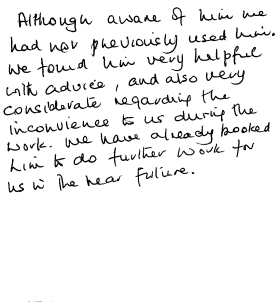 Although aware of him we
had not previously used him.
We found him very helpful
with advice, and also very
considerate regarding the
inconvience to us during the
work. We have already booked
him to do further work for
us in the near future.